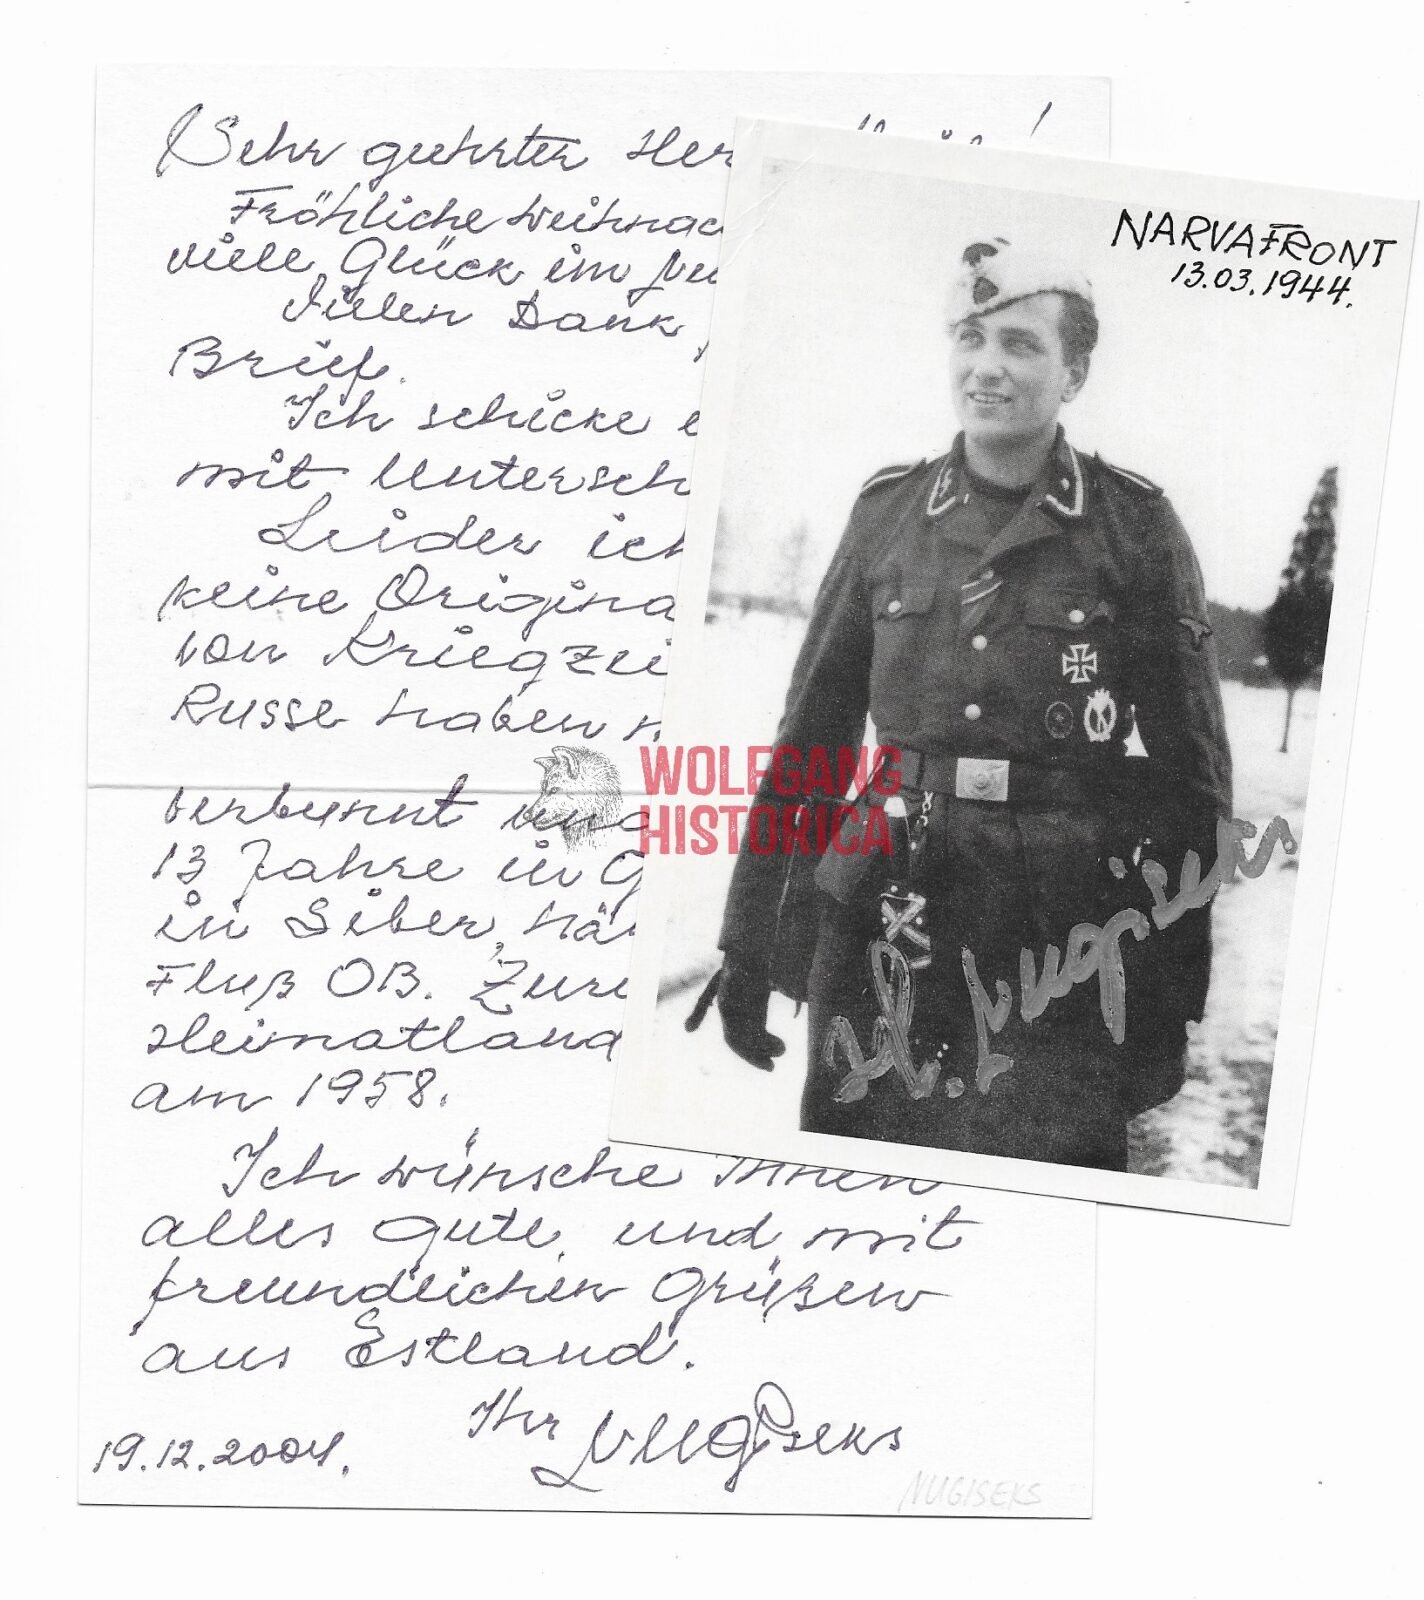 Sehr geehrter Her
Fröhliche Weihnac
viele Glück im Neu
Vielen Dank
Brief.
Ich schicke e
mit Untersch
Leider ich
keine Origina
von Kriegzei
Russe haben
verbrannt und
13 Jahre in G
in Siber, nä
Fluß OB. Zurü
Heimatland
am 1958.
Ich wünsche Ihnen
alles gute, und mit
freundlichen Grüßen
aus Estland.
Ihr Nugiseks
19.12.2004.
NUGISEKS
NARVAFRONT
13.03.1944.
H. Nugiseks
WOLFGANG
HISTORICA